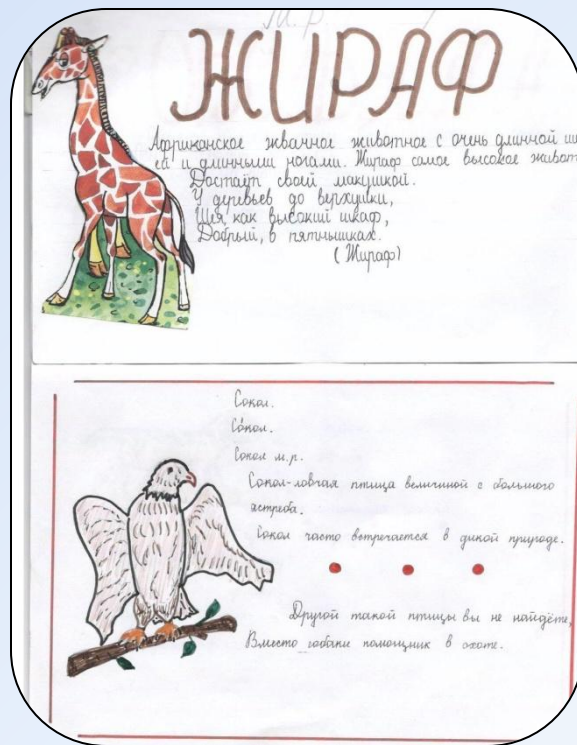 м.р.
ЖИРАФ
Африканское жвачное животное с очень длинной ше
ей и длинными ногами. Жираф самое высокое живот
Достаёт своей макушкой.
У деревьев до верхушки,
Шея как высокий шкаф,
Добрый, в пятнышках.
(Жираф)
Сокол.
Со́кол.
Сокол м.р.
Сокол-ловчая птица величиной с большого
ястреба.
Сокол часто встречается в дикой природе.
Другой такой птицы вы не найдёте,
Вместо собаки помощник в охоте.